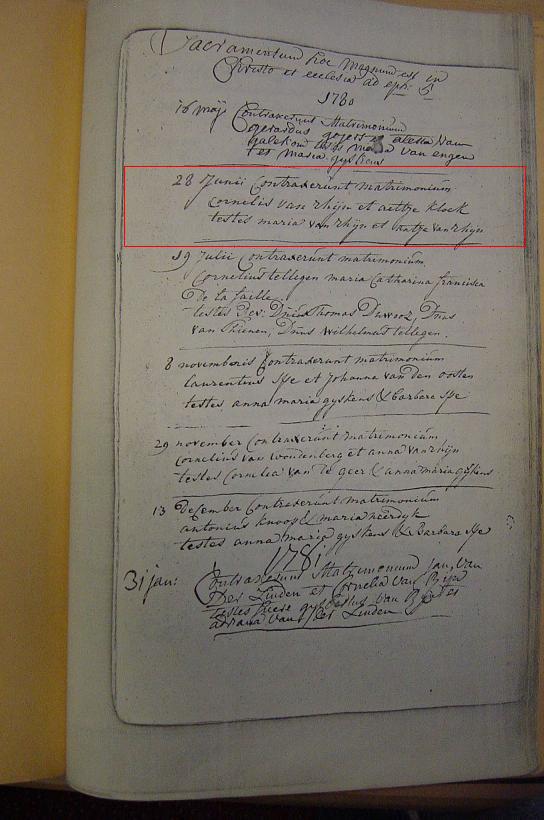 Sacramentum hoc Magnum est in
Christo et ecclesia ad eph: 5
1780
16 maij Contraxerunt Matrimonium
Gerardus et aletta van
testes van engen
et maria gyskens
28 Junii Contraxerunt matrimonium
cornelis van rhijn et aeltje klock
testes maria van rhijn et aatje van rhijn
19 Julii Contraxerunt matrimonium
Cornelius tellegen maria Catharina francisca
De la faille
testes Rev: Dnus Thomas Dnus
van Rhienen, Dnus wilhelmus tellegen.
8 novembris Contraxerunt matrimonium
laurentius et Johanna van den oosten
testes anna maria gyskens & barbara
29 november Contraxerunt matrimonium
cornelius van woudenberg et anna van rhijn
testes Cornelia van de geer & anna maria gijskens
13 December Contraxerunt matrimonium
antonius knoop & maria neerdyk
testes anna maria gyskens & Barbara
1781
31 jan: Contraxerunt Matrimonium Jan, van
Der Linden et Cornelia van Rijn
testes fuere van
adriana van der Linden